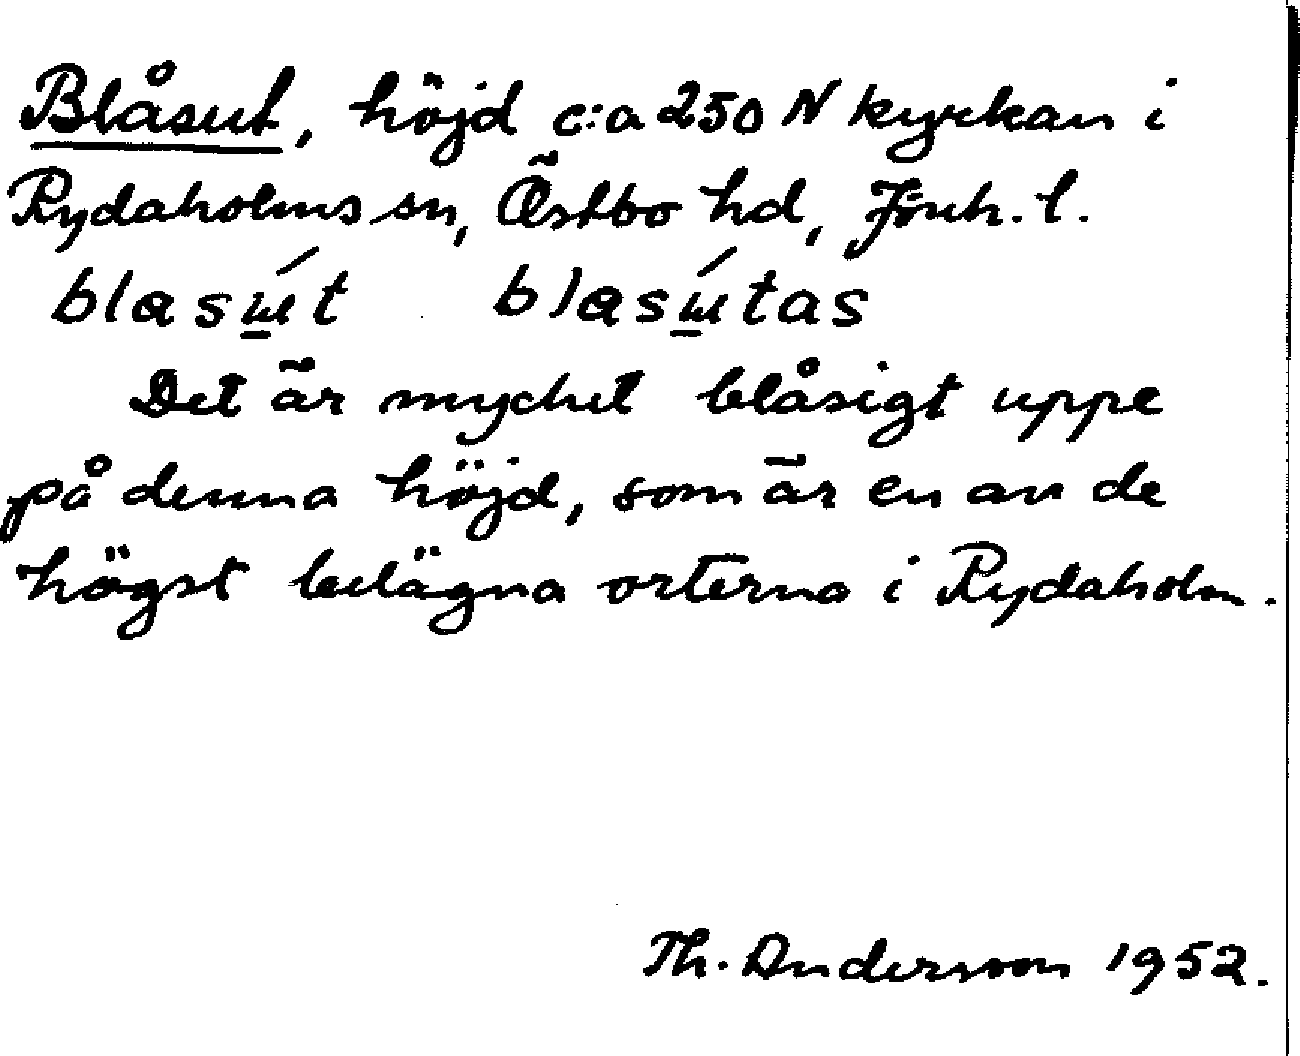 Blåsut, höjd c:a 250 N kyrkan i
Rydaholms sn, Östbo hd, Jönk. l.
blasɯ̱́t blasɯ̱́tas
Det är mycket blåsigt uppe
på denna höjd, som är en av de
högst belägna orterna i Rydaholm.
Th. Andersson 1952.